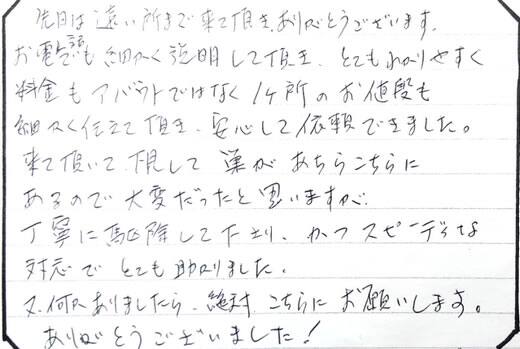 先日は遠い所まで来て頂き、ありがとうございます。
お電話でも細かく説明して頂き、とてもわかりやすく
料金もアバウトではなく1ヶ所のお値段も
細かく仕立て頂き、安心して依頼できました。
来て頂いて、下見して巣があちらこちらに
あるので大変だったと思いますが、
丁寧に駆除して下さり、かつスピーディな
対応でとても助かりました。
又、何かありましたら、絶対、こちらにお願いします。
ありがとうございました!